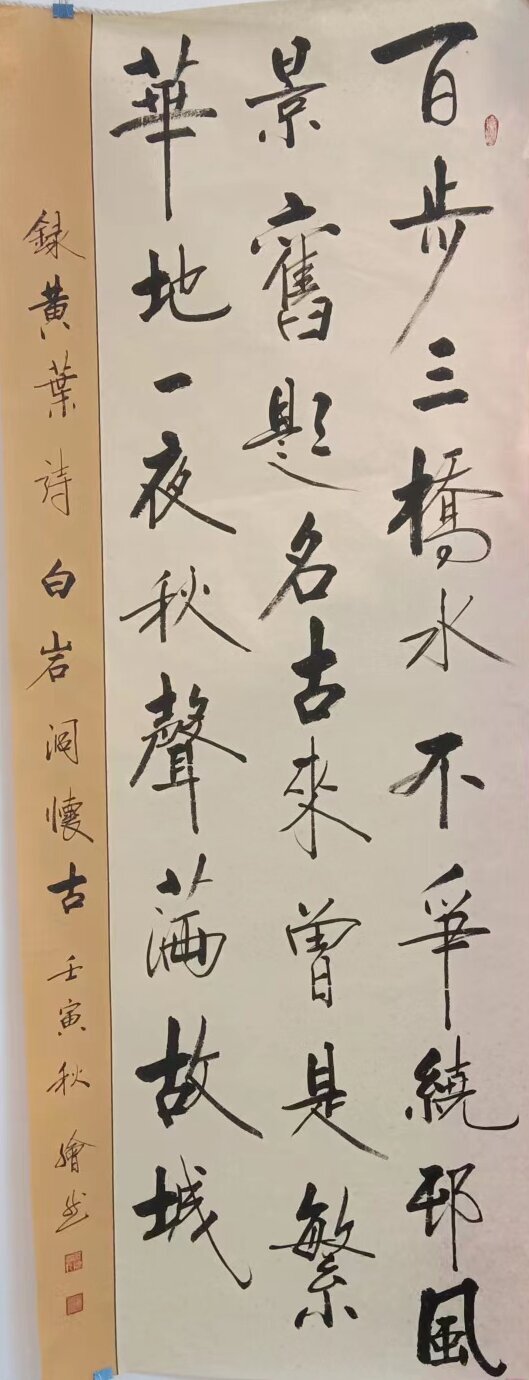 百步三橋水不爭繞邨風
景舊題名古來曾是繁
華地一夜秋聲滿故城
録黄葉詩白岩洞懷古壬寅秋繪